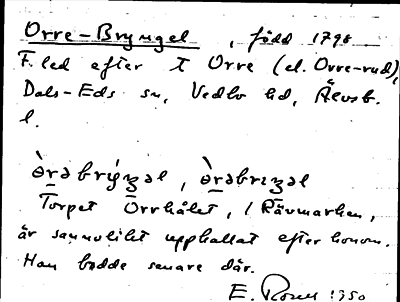 Orre-Bryngel, född 1798
F. led efter t Orre (el. Orre-rud),
Dals-Eds sn, Vedbo hd, Älvsb.
l.
òrəbrýŋəl, òrəbrɪŋəl
Torpet Orrhålet, i Rävmarken,
är sannolikt uppkallat efter honom.
Han bodde senare där.
E. 1950